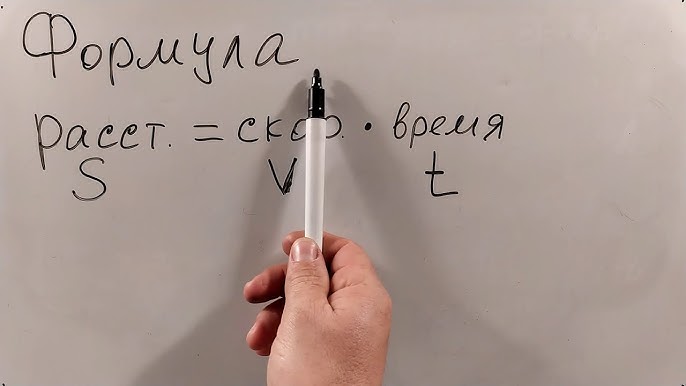 Формула
расст. = скор. · время
S V t